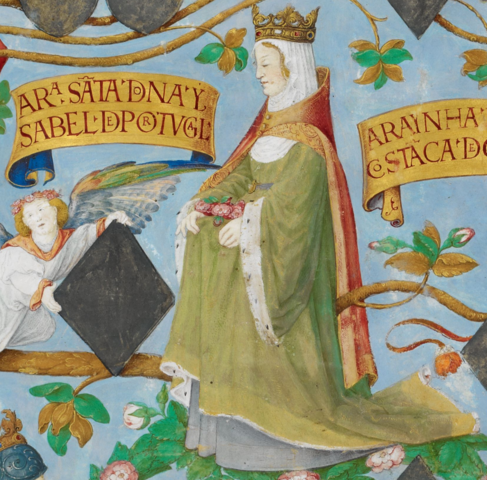 ARA SÃTA·DNA·Y
SABEL·DEPORTVGL
ARAYNHA·
COSTÃCA·DE